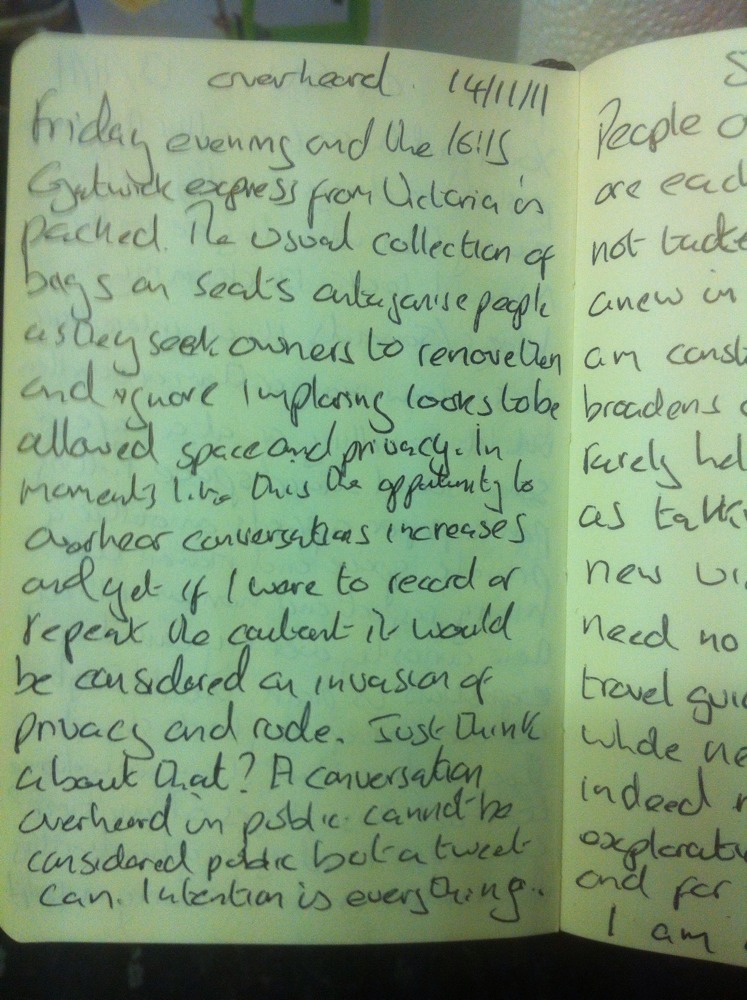 overheard. 14/11/11
Friday evening and the 16:15
Gatwick express from Victoria is
packed. The usual collection of
bags on seats antagonise people
as they seek owners to remove them
and ignore imploring looks to be
allowed space and privacy. In
moments like this the opportunity to
overhear conversations increases
and yet if I were to record or
repeat the content it would
be considered an invasion of
privacy and rude. Just think
about that? A conversation
overheard in public cannot be
considered public but a tweet
can. Intention is everything..
S
People o
are each
not
anew in
am
broadens
rarely
as
new
need no
travel
whole ne
indeed

and for
I am